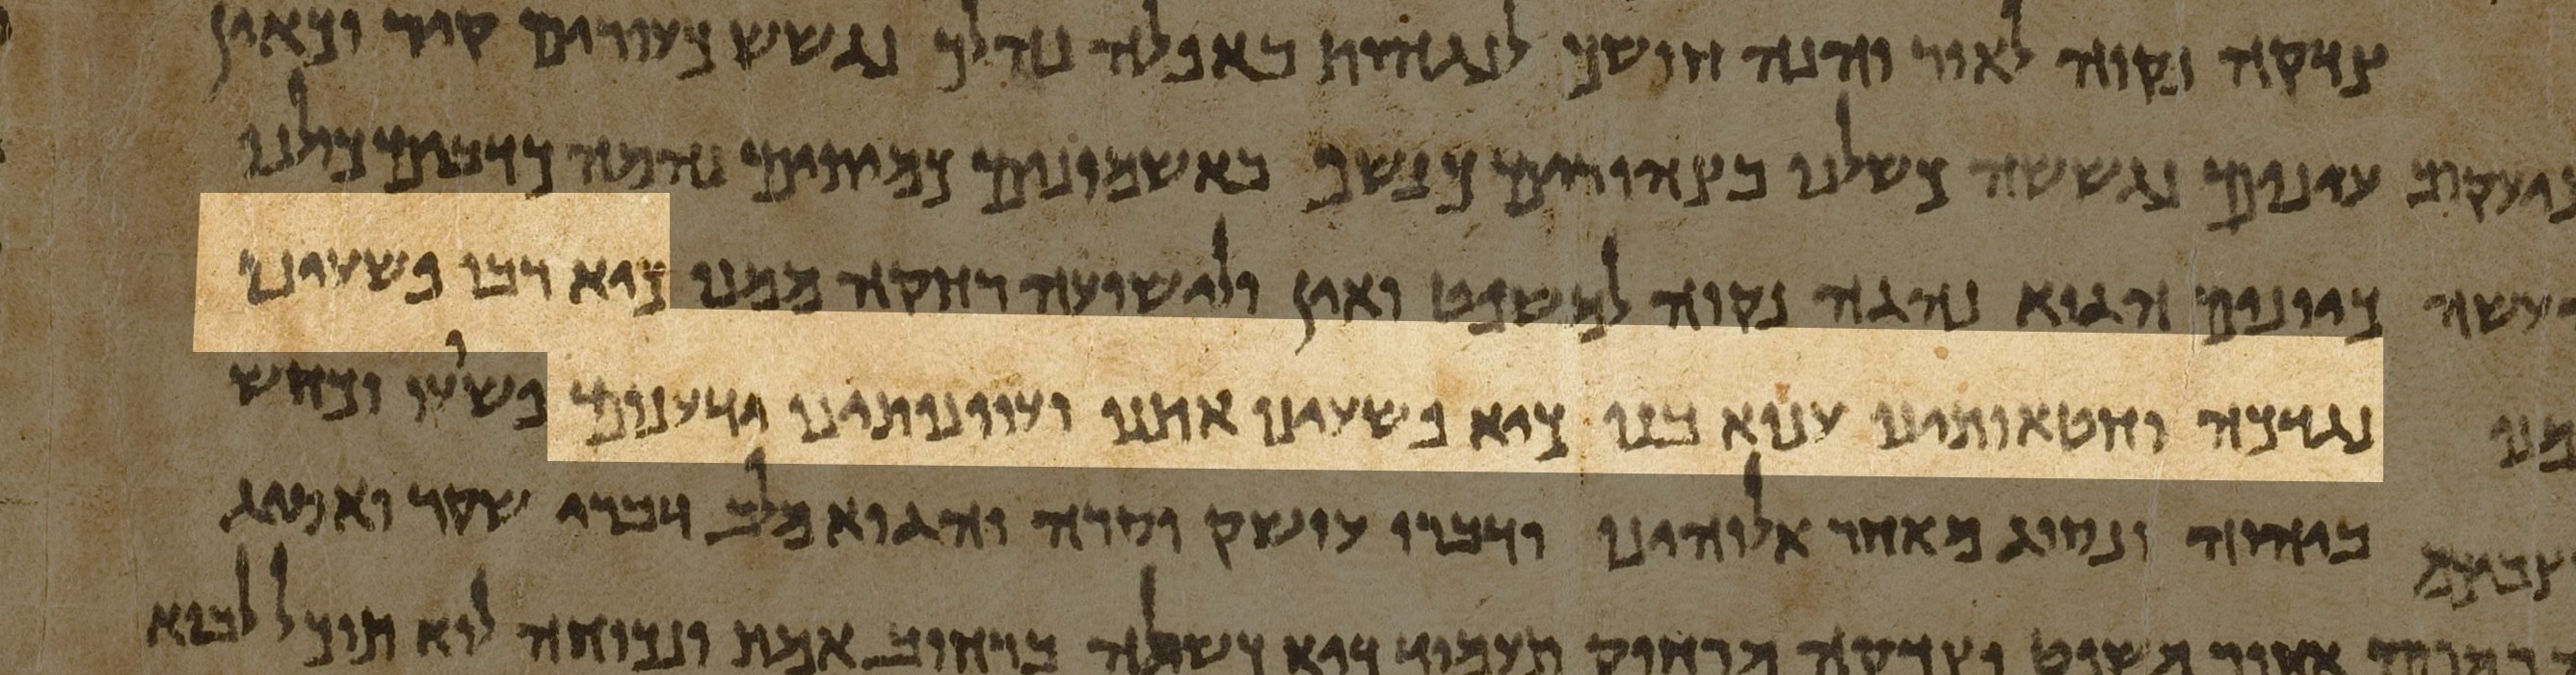 צדקה נקוה לאור והנה חושכ לנגהות באפלה נהלכ נגשש כעורים קיר וכאין
עינים נגששה כשלנו בצהורים כנשפ באשמונים כמיתים נהמה כדבים כולנו
כיונים הגוא נהגה נקוה למשפט ואין ולישועה רחקה ממנו כיא רבו פשעינו
נגדכה וחטאותינו ענוא בנו כיא פשעינו אתנו ועוונתינו ידענום פשוע וכחש
ביהוה ונסוג מאחר אלוהינו ודברו עושק וסרה והגוא מלב דברי שקר ואסיג
אחור משפט וצדקה מרחוק תעמוד כיא כשלה ברחוב אמת ונכוחה לוא תוכל לבוא